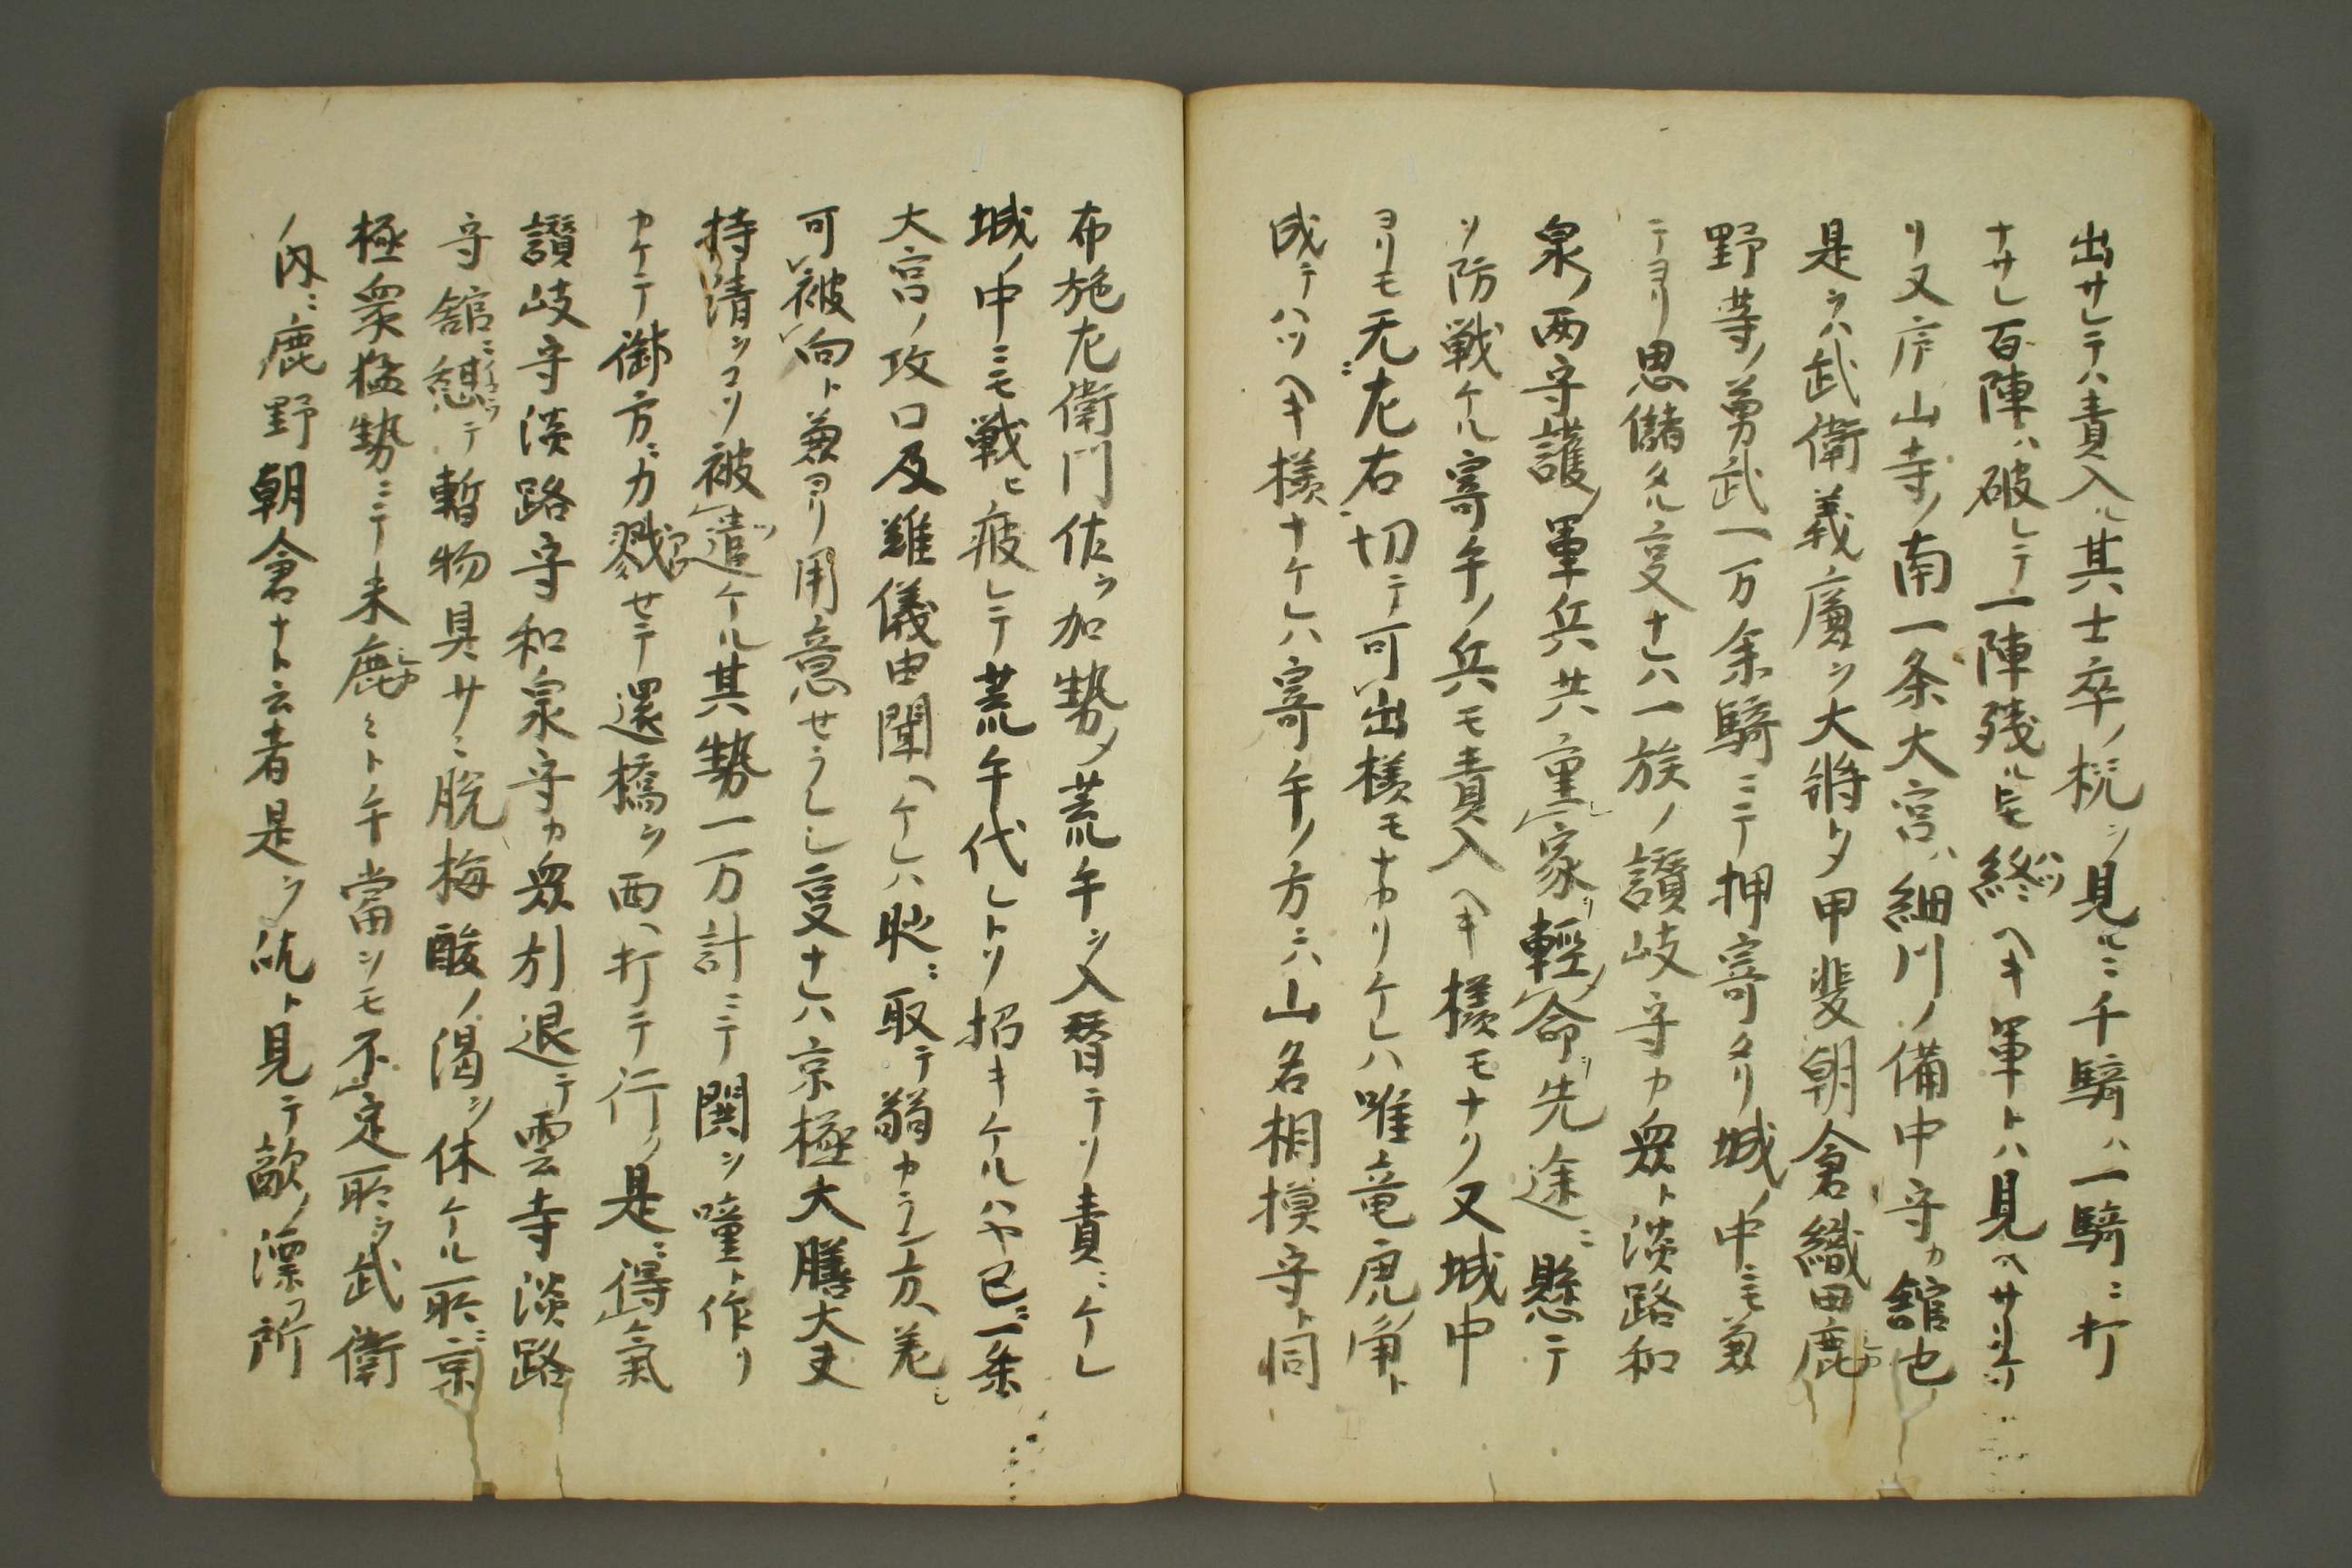 出サレテハ責入ル其士卒ノ㒵ヲ見モミ千騎ハ一騎ニ打
ナサレ百陣ハ破レテ一陣残ル𪜈終ヘキ軍トハ見ヘサリケ
リ又芦山寺ノ南一条大宮ハ細川ノ備中守カ舘也
是ヲハ武衛義廉ヲ大将トシ〆甲斐朝倉織田鹿
野等ノ勇武一万余騎ニテ押寄タリ城ノ中ニモ兼
テヨリ思儲タル夏ナレハ一族ノ讃岐守カ衆ト淡路和
泉ノ両守護ノ軍兵共重家ヲ輕命ヲ先途ニ懸テ
ソ防戦ケル寄手ノ兵モ責入ヘキ様モナク又城中
ヨリモ无左右切テ可出様モナカリケレハ唯竜虎争ト
成テハツヘキ様ナケレハ寄手ノ方ニハ山名相摸守ト同
布施左衛門佐ヲ加勢メ荒手ヲ入替テソ責ニケレ
城ノ中ニモ戦ヒ疲レテ荒手代レトソ招キケルハヤ已ニ一条
大宮ノ攻口及難儀由聞ヘケレハ耻ニ取テ弱カラン方ヘ羌
可被向ト兼ヨリ用意せラレシ夏ナレハ京極大膳大夫
持清ヲコソ被遣ケル其勢一万計ニテ関ヲ噇ト作リ
カケテ御方ニ力戮せテ還橋ヲ西ヘ打テ行ク是ニ得氣
讃岐守淡路守和泉守カ衆引退テ雲寺淡路
守舘ニ憩テ暫物具サミ脱梅酸ノ渇ヲ休ケル所ニ京
極衆猛勢ニテ未鹿ミト手當ヲモ不定所ヲ武衛
ノ内ニ鹿野朝倉ナト云者是ヲ吭ト見テ敵ノ漂フ所